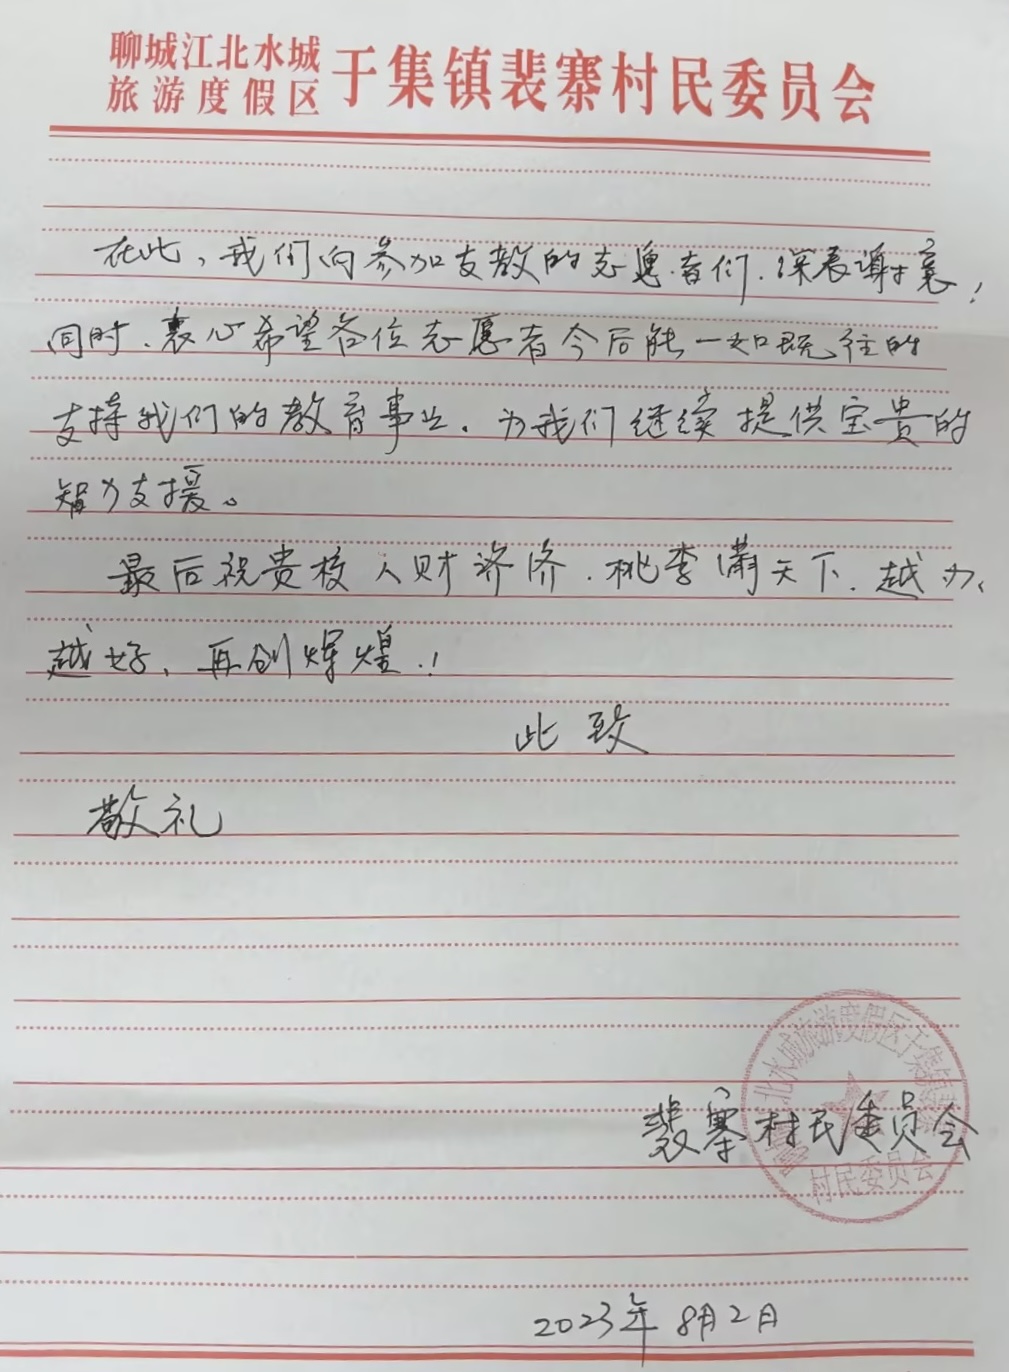 聊城江北水城
旅游度假区
于集镇裴寨村民委员会
在此,我们向参加支教的志愿者们.深表谢衷!
同时、衷心希望各位志愿者今后能一如既往的
支持我们的教育事业.为我们继续提供宝贵的
智力支援。
最后祝贵校人财济济.桃李满天下.越办
越好、再创辉煌!
此致
敬礼
裴寨村民委员会
村民委员会
2023年8月2日